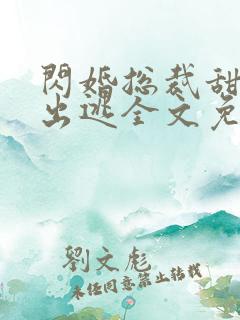 閃婚总裁甜
出逃全文免
劉文彪
未经同意禁止转载